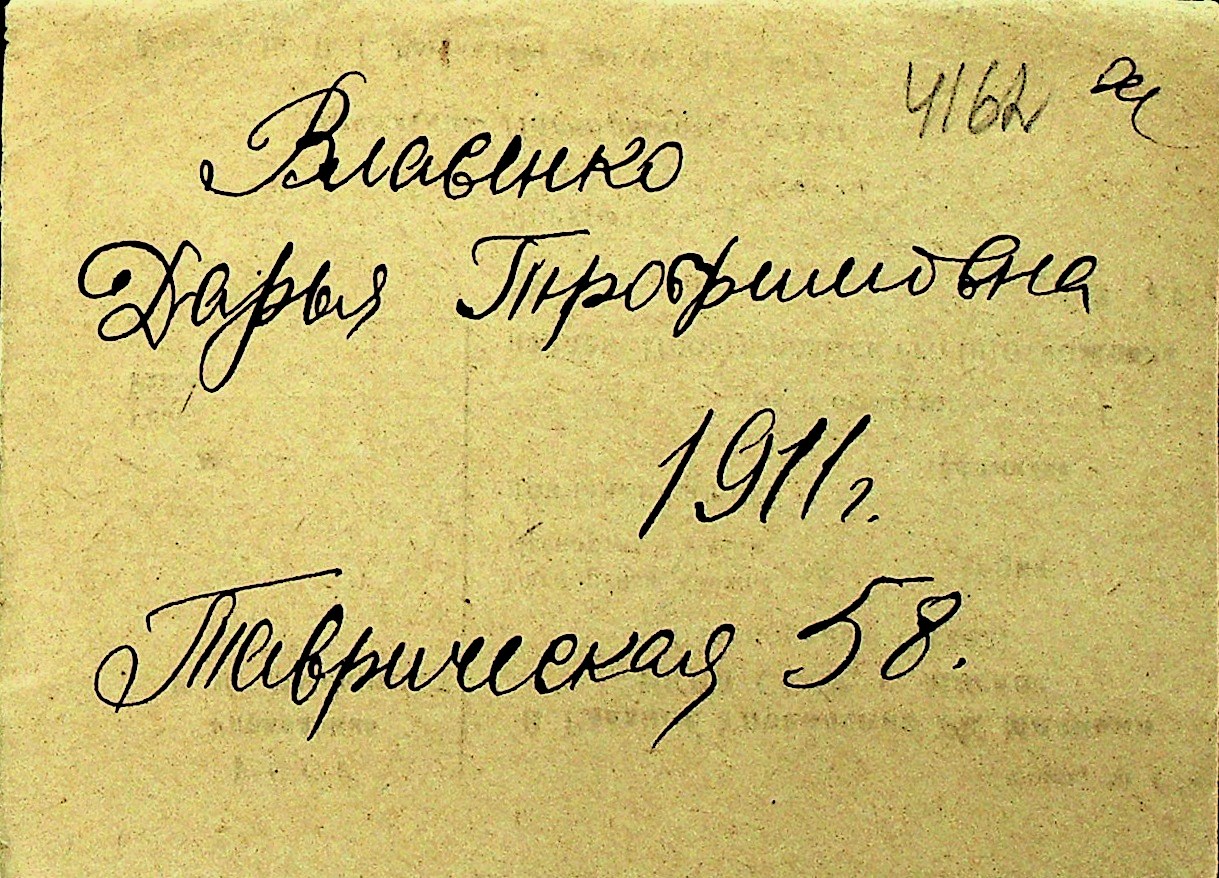 4162
Власенко
Дарья Трофимовна
1911 г.
Таврическая 58.